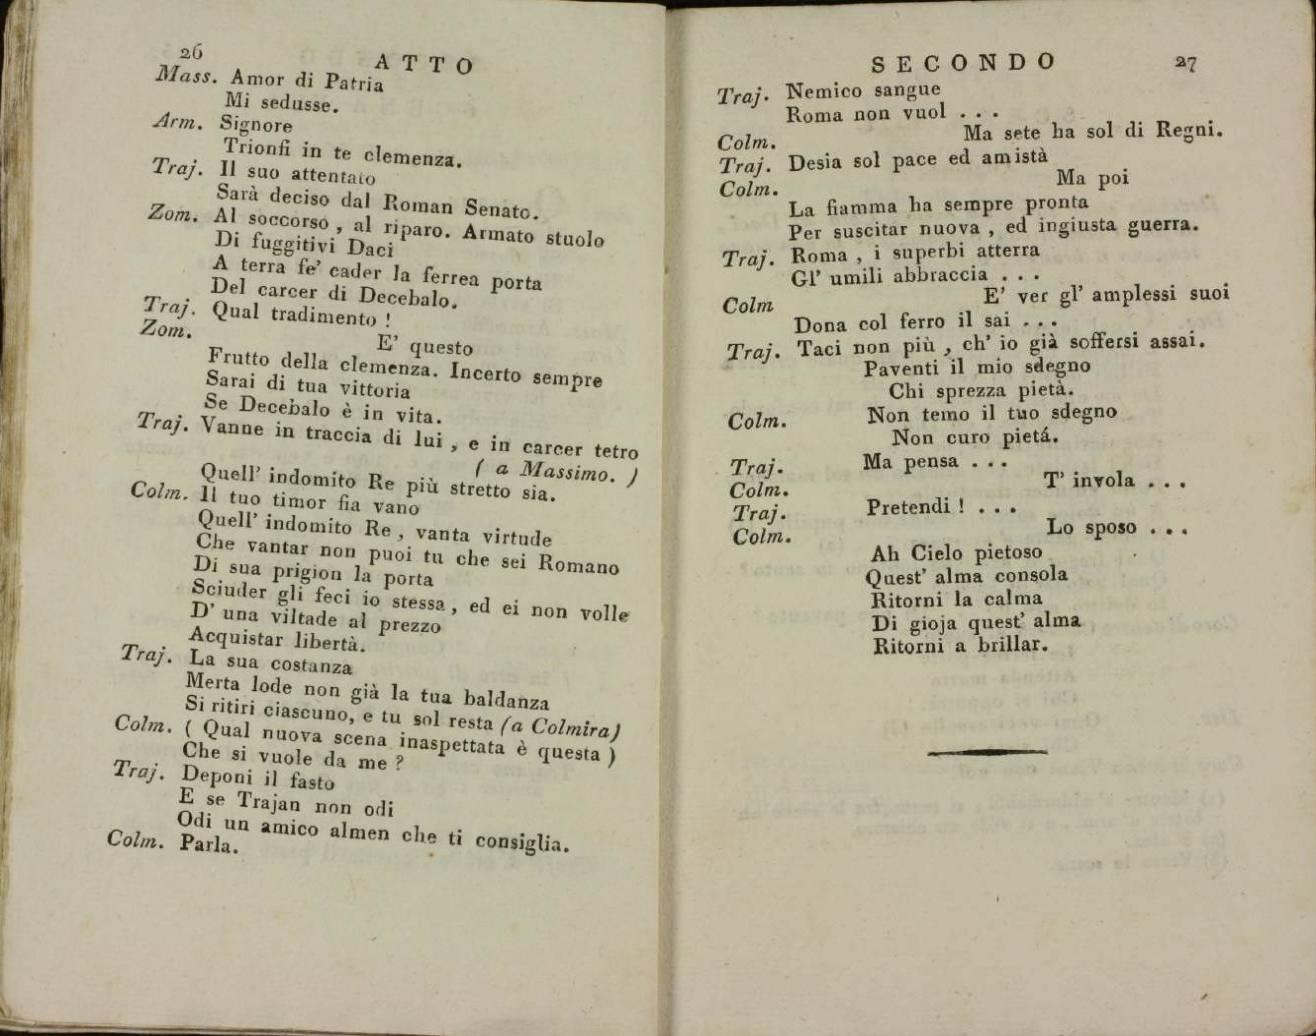 26
ATTO
Mass. Amor di Patria
Mi sedusse.
Arm. Signore
Trionfi in te clemenza.
Traj. Il suo attentato
Sarà deciso dal Roman Senato.
Zom. Al soccorso, al riparo. Armato stuolo
Di fuggitivi Daci
A terra fe' cader la ferrea porta
Del carcer di Decebalo.
Traj. Qual tradimento!
Zom. E' questo
Frutto della clemenza. Incerto sempre
Sarai di tua vittoria
Se Decebalo è in vita.
Traj. Vanne in traccia di lui, e in carcer tetro
( a Massimo. )
Quell' indomito Re più stretto sia.
Colm. Il tuo timor fia vano
Quell' indomito Re, vanta virtude
Che vantar non puoi tu che sei Romano
Di sua prigion la porta
Sciuder gli feci io stessa, ed ei non volle
D' una viltade al prezzo
Acquistar libertà.
Traj. La sua costanza
Merta lode non già la tua baldanza
Si ritiri ciascuno, e tu sol resta (a Colmira)
Colm. ( Qual nuova scena inaspettata è questa )
Che si vuole da me?
Traj. Deponi il fasto
E se Trajan non odi
Odi un amico almen che ti consiglia.
Colm. Parla.
SECONDO
27
Traj. Nemico sangue
Roma non vuol . . .
Colm. Ma sete ha sol di Regni.
Traj. Desia sol pace ed amistà
Colm. Ma poi
La fiamma ha sempre pronta
Per suscitar nuova, ed ingiusta guerra.
Traj. Roma, i superbi atterra
Gl' umili abbraccia . . .
Colm E' ver gl' amplessi suoi
Dona col ferro il sai . . .
Traj. Taci non più, ch' io già soffersi assai.
Paventi il mio sdegno
Chi sprezza pietà.
Colm. Non temo il tuo sdegno
Non curo pietá.
Traj. Ma pensa . . .
Colm. T' invola . . .
Traj. Pretendi! . . .
Colm. Lo sposo . . .
Ah Cielo pietoso
Quest' alma consola
Ritorni la calma
Di gioja quest' alma
Ritorni a brillar.